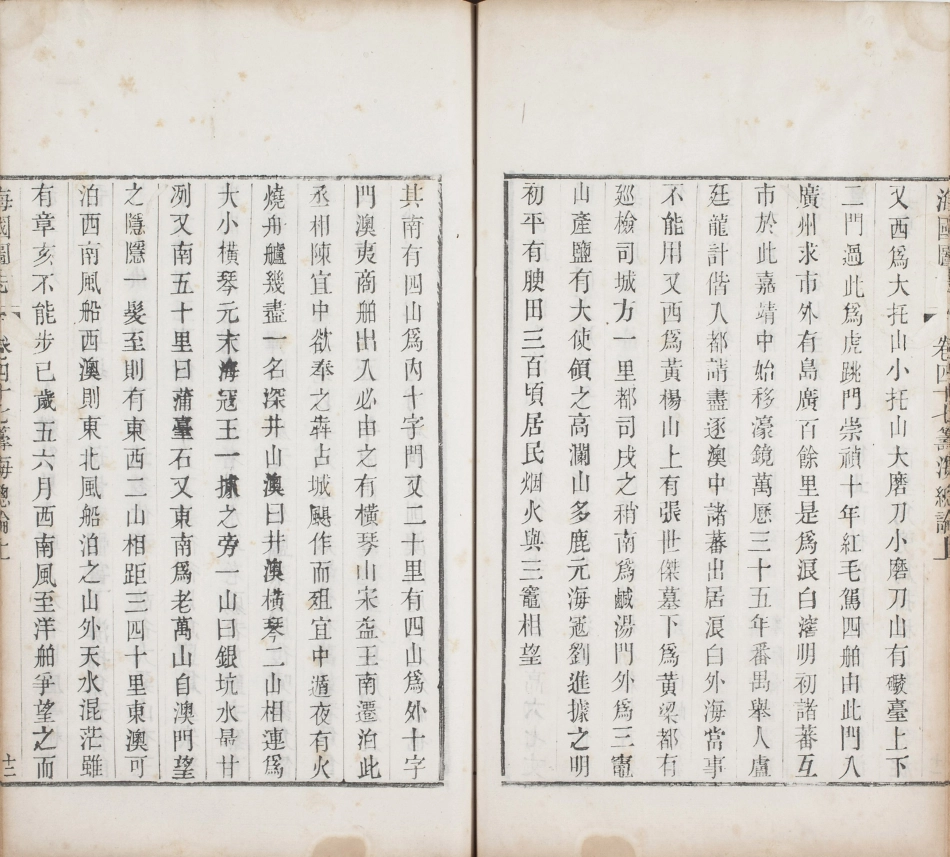 又西爲大托山小托山大磨刀小磨刀山有礮臺上下
二門過此爲虎跳門崇禎十年紅毛駕四舶由此門入
廣州求市外有島廣百餘里是爲浪白滘明初諸蕃互
市於此嘉靖中始移濠鏡萬厯三十五年番禺舉人盧
廷龍計偕入都請盡逐澳中諸蕃出居浪白外海當事
不能用又西爲黃楊山上有張世傑墓下爲黃梁都有
廵檢司城方一里都司戍之稍南爲鹹湯門外爲三竈
山產鹽有大使領之高瀾山多鹿元海冦劉進據之明
初平有腴田三百頃居民烟火與三竈相望
其南有四山爲內十字門又二十里有四山爲外十字
門澳夷商舶出入必由之有橫琴山宋益王南遷泊此
丞相陳宜中欲奉之犇占城颶作而殂宜中遁夜有火
燒舟艫幾盡一名深井山澳曰井澳橫琴二山相連爲
大小橫琴元末海冦王一據之旁一山曰銀坑水最甘
洌又南五十里曰蒲臺石又東南爲老萬山自澳門望
之隱隱一髮至則有東西二山相距三四十里東澳可
泊西南風船西澳則東北風船泊之山外天水混茫雖
有章亥不能步已歲五六月西南風至洋舶爭望之而
海國圖志 卷四十七籌海總論上 十三